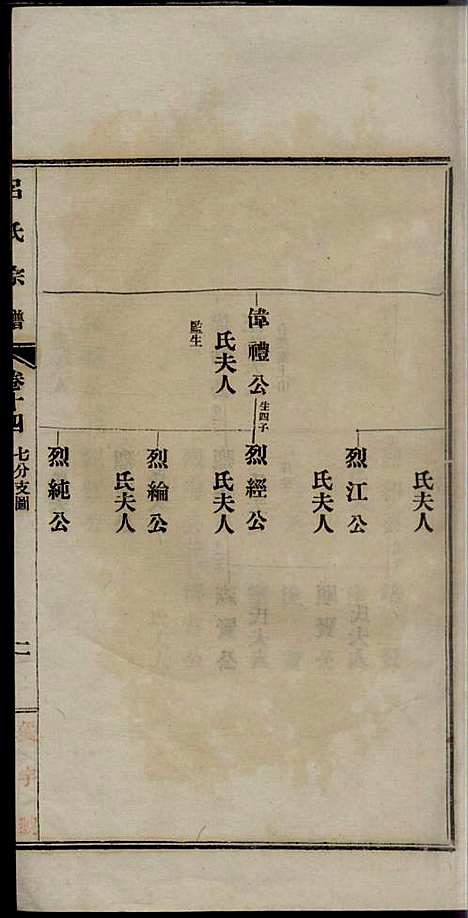 氏夫人
烈江公
氏夫人
偉禮公 生四子
烈經公
氏夫人
氏夫人
監生
烈綸公
氏夫人
烈純公
呂氏宗譜
卷十四
七分支圖
二